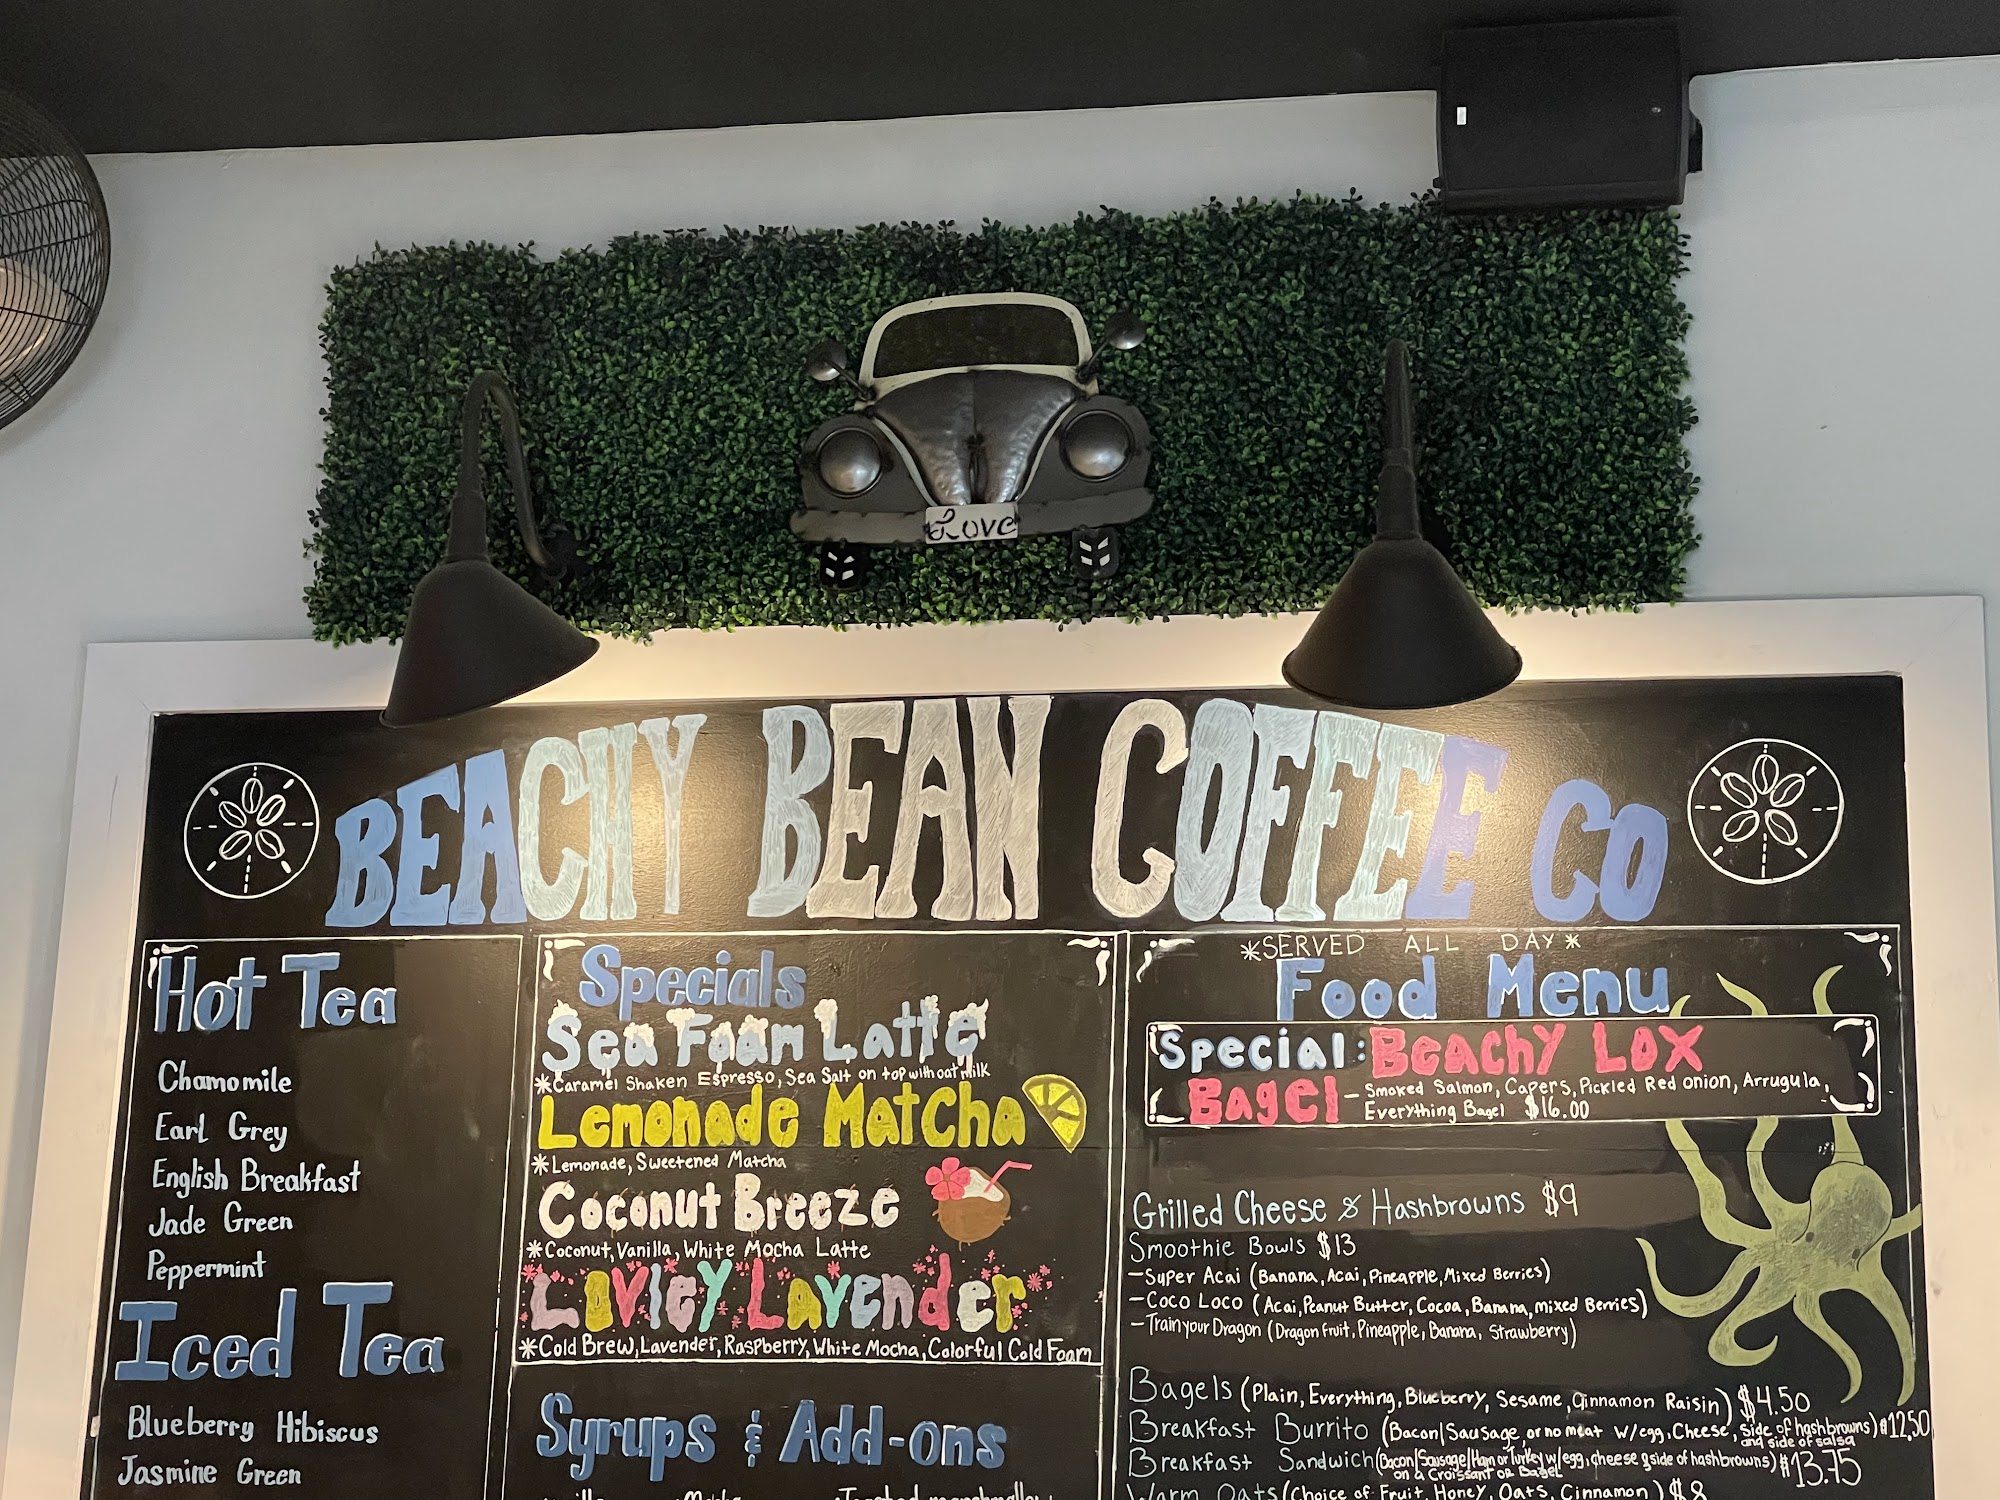 Love
BEACHY BEAN COFFEE CO
Hot Tea
Chamomile
Earl Grey
English Breakfast
Jade Green
Peppermint
Iced Tea
Blueberry Hibiscus
Jasmine Green
Specials
Sea Foam Latte
*Caramel Shaken Espresso, Sea Salt on top with oat milk
Lemonade Matcha
*Lemonade, Sweetened Matcha
Coconut Breeze
*Coconut, Vanilla, White Mocha Latte
Lovley Lavender
*Cold Brew, Lavender, Raspberry, White Mocha, Colorful Cold Foam
Syrups & Add-ons
Mocha
Toasted marshmallow
*SERVED ALL DAY*
Food Menu
Special: Beachy Lox
Bagel - Smoked Salmon, Capers, Pickled Red onion, Arrugula,
Everything Bagel $16.00
Grilled Cheese & Hashbrowns $9
Smoothie Bowls $13
-Super Acai (Banana, Acai, Pineapple, Mixed Berries)
-Coco Loco (Acai, Peanut Butter, Cocoa, Banana, mixed Berries)
-Train your Dragon (Dragon fruit, Pineapple, Banana, Strawberry)
Bagels (Plain, Everything, Blueberry, Sesame, Cinnamon Raisin) $4.50
Breakfast Burrito (Bacon/Sausage, or no meat w/egg, Cheese, side of hashbrowns) $12.50
and side of salsa
Breakfast Sandwich (Bacon/Sausage/Ham or Turkey w/egg, cheese & side of hashbrowns) $13.75
on a Croissant or Bagel
Warm Oats (Choice of Fruit, Honey, Oats, Cinnamon) $8